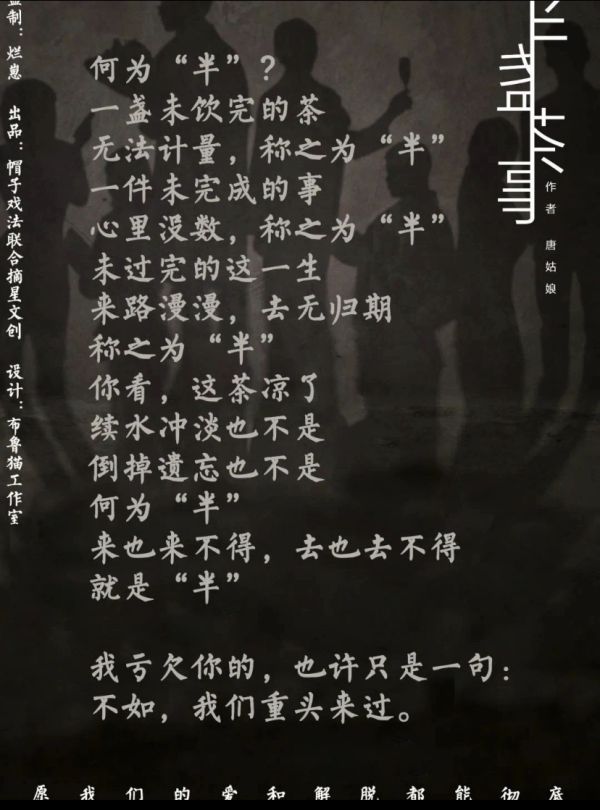 何为“半”？
一盏未饮完的茶
无法计量，称之为“半”
一件未完成的事
心里没数，称之为“半”
未过完的这一生
来路漫漫，去无归期
称之为“半”
你看，这茶凉了
续水冲淡也不是
倒掉遗忘也不是
何为“半”
来也来不得，去也去不得
就是“半”
我亏欠你的，也许只是一句：
不如，我们重头来过。
作者 唐姑娘
监制：烂崽 出品：帽子戏法联合摘星文创 设计：布鲁猫工作室
愿我们的爱和解脱都能彻底